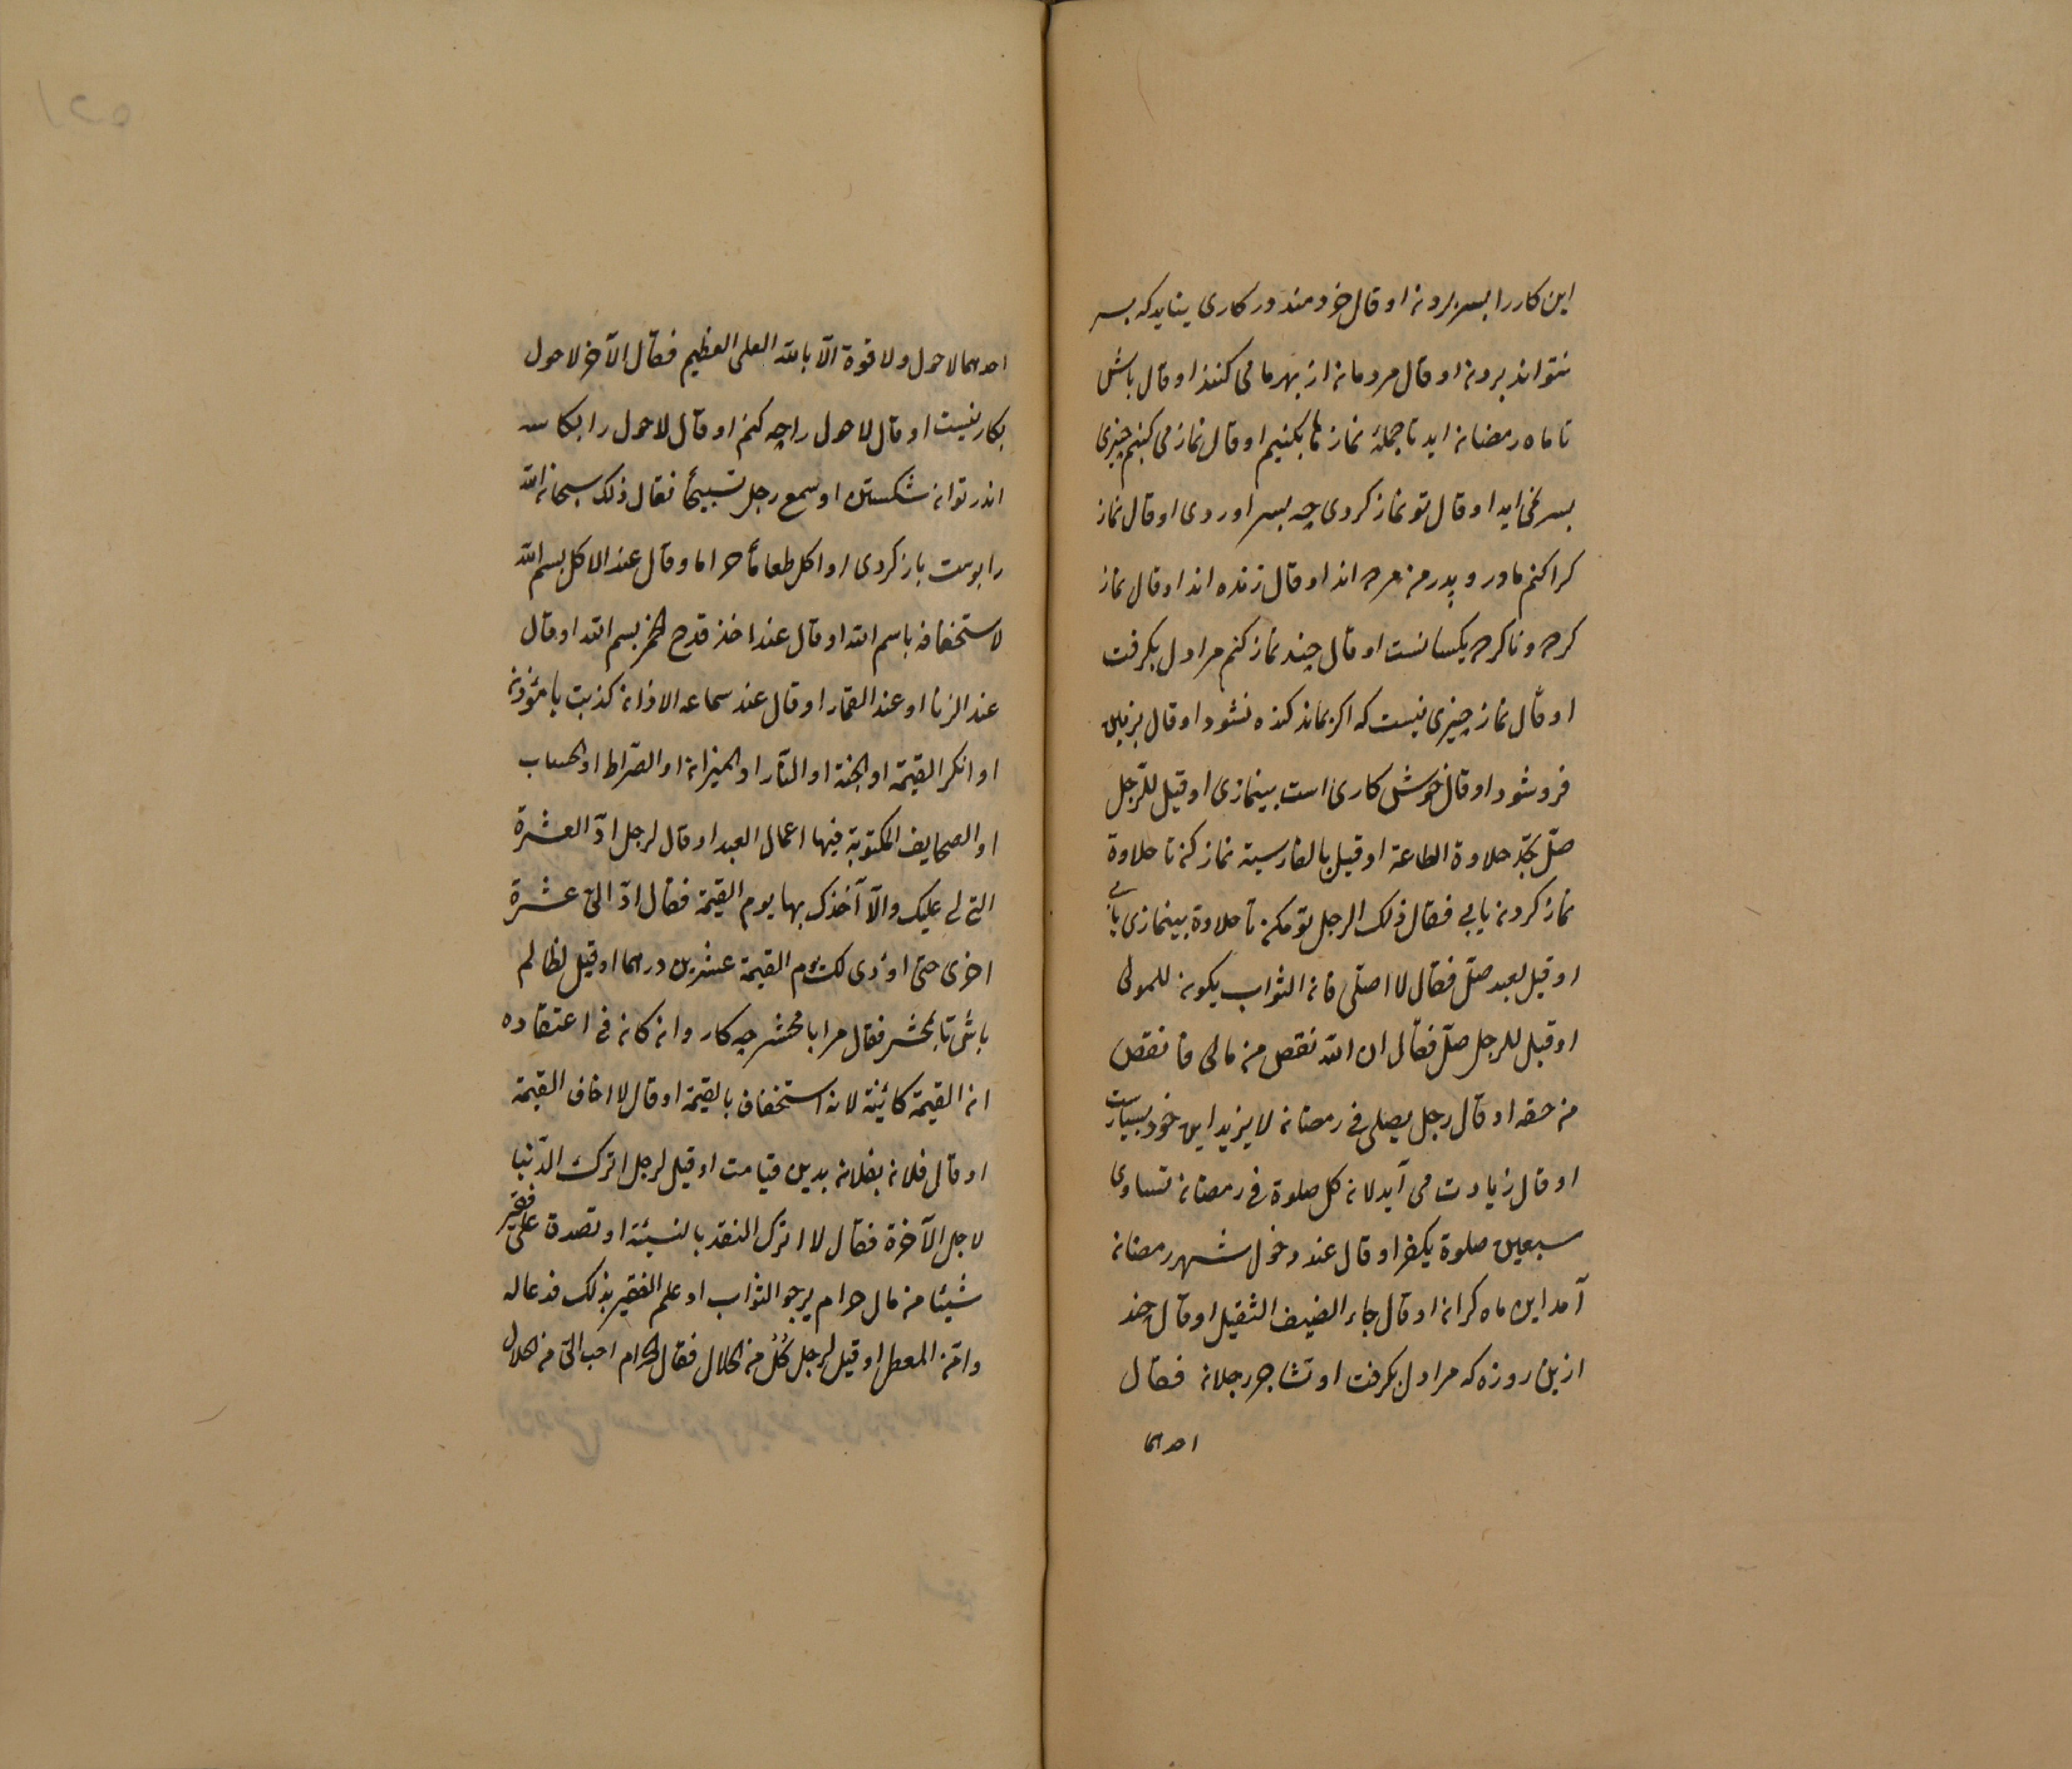 این کار را بسر بردن او قال خردمند در کاری نیاید که بسر
نتواند بردن او قال مردمان از بهر ما می کنند او قال باش
تا ماه رمضان اید تا جملهٔ نماز ها بکنیم او قال نماز می کنیم چیزی
بسر نمی اید او قال تو نماز کردی چه بسر اوردی او قال نماز
کرا کنم مادر و پدر من مرده اند او قال زنده اند او قال نماز
کرده و ناکرده یکسانست او قال چند نماز کنم مرا دل بکرفت
او قال نماز چیزی نیست که اکر بماند کنده نشود او قال بزمین
فرو شود او قال خوش کاری است بینمازی او قیل للرّجل
صلّ تجد حلاوة الطاعة او قیل بالفارسیة نماز کن تا حلاوة
نماز کردن یابی فقال ذلک الرجل تو مکن تا حلاوة بینمازی یابی
او قیل لعبد صلّ فقال لا اصلّی فان الثواب یکون للمولی
او قیل للرجل صلّ فقال ان الله نقص من مالی فانقص
من حقه او قال رجل یصلی فی رمضان لا یزید این خود بسیارست
او قال زیادت می آید لان کل صلوة فی رمضان تساوی
سبعین صلوة یکفر او قال عند دخول شهر رمضان
آمد این ماه کران او قال جاء الضیف الثقیل او قال چند
ازین روزه که مرا دل بکرفت او تشاجر رجلان فقال
احدهما
احدهما لا حول ولا قوة الّا بالله العلی العظیم فقال الآخر لا حول
بکار نیست او قال لا حول را چه کنم او قال لا حول را بکاسه
اندر توان شکستن او سمع رجل تسبیحًا فقال ذلک سبحان الله
را پوست باز کردی او اکل طعامًا حراما وقال عند الاکل بسم الله
لاستخفافه باسم الله او قال عند اخذ قدح الخمر بسم الله او قال
عند الزنا او عند القمار او قال عند سماعه الاذان کذبت یا مؤذن
او انکر القیمة او الجنة او النّار او المیزان او الصّراط او الحساب
او الصحایف المکتوبة فیها اعمال العبد او قال لرجل ادّ العشرة
التی لی علیک والّا آخذک بها یوم القیمة فقال ادّ الیّ عشرة
اخری حتی اؤدی لک یوم القیمة عشرین درهما او قیل لظالم
باش تا بمحشر فقال مرا با محشر چه کار وان کان فی اعتقاده
ان القیمة کائنة لانه استخفاف بالقیمة او قال لا اخاف القیمة
او قال فلان بفلان بدین قیامت او قیل لرجل اترک الدّنیا
لاجل الآخرة فقال لا اترک النقد بالنسیئة او تصدق علی فقیر
شیئا من مال حرام یرجو الثواب او علم الفقیر بذلک فدعا له
وامّن المعطی او قیل لرجل کُلْ من الحلال فقال الحرام احب الیّ من الحلال